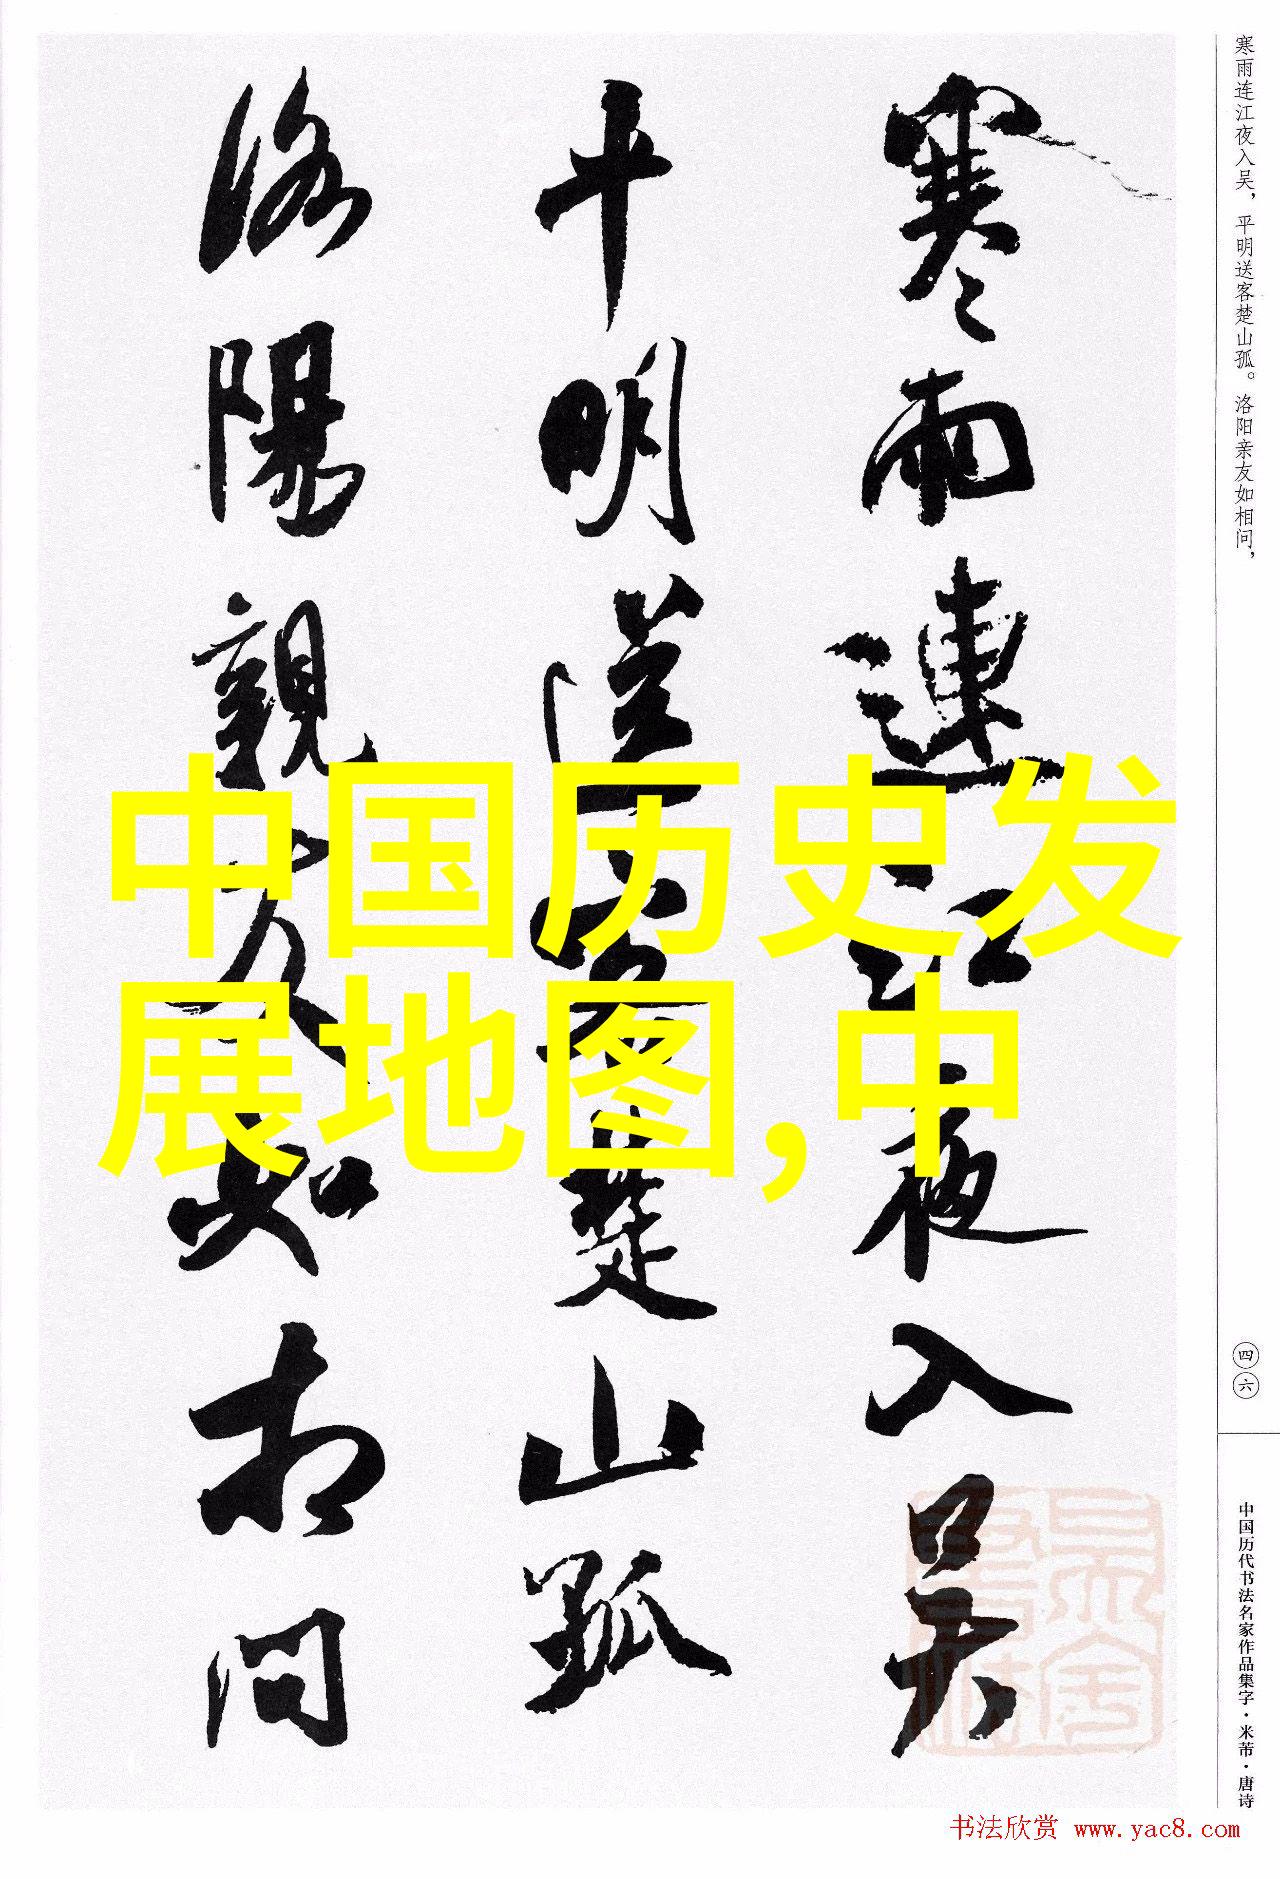 寒雨連江夜入吴
平明送客楚山孤
洛陽親友如相问
寒雨连江夜入吴，平明送客楚山孤。洛阳亲友如相问，
四六
中国历代书法名家作品集字·米芾·唐诗
中国历史发
展地图,中
书法欣赏 www.yac8.com